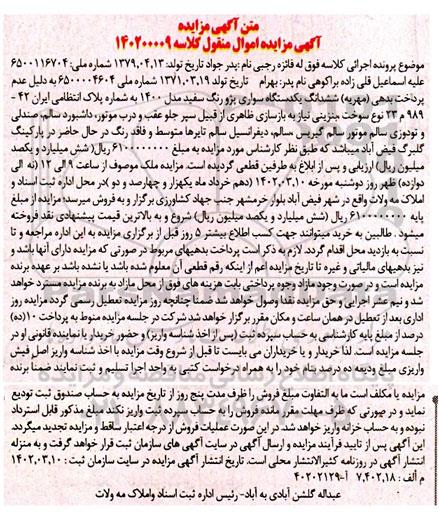 متن آگهی مزایده
آگهی مزایده اموال منقول کلاسه ۱۴۰۲۰۰۰۰۹
موضوع پرونده اجرائی کلاسه فوق له فائزه رجبی نام پدر جواد تاریخ تولد: ۱۳۷۹.۰۴.۱۳ شماره ملی: ۶۵۰۰۱۱۶۷۰۴
علیه اسماعیل قلی زاده براکوهی نام پدر: بهرام تاریخ تولد ۱۳۷۱.۰۳.۱۹ شماره ملی ۶۵۰۰۰۰۴۶۰۴ به دلیل عدم
پرداخت بدهی (مهریه) ششدانگ یکدستگاه سواری پژو رنگ سفید مدل ۱۴۰۰ به شماره پلاک انتظامی ایران ۴۲ –
۹۸۹ م ۲۳ نوع سوخت بنزینی نیاز به بازسازی ظاهری از قبیل سپر جلو عقب و درب موتور، داشبورد سالم، صندلی
و تودوزی سالم موتور سالم گیربکس سالم، دیفرانسیل سالم تایرها متوسط و فاقد رنگ در حال حاضر در پارکینگ
گلبرگ فیض آباد میباشد که طبق نظر کارشناس مورد مزایده به مبلغ ۶۱۰۰۰۰۰۰۰۰ ریال (شش میلیارد و یکصد
میلیون ریال) ارزیابی و پس از ابلاغ به طرفین قطعی گردیده است. مزایده ملک موصوف از ساعت ۹ الی ۱۲ (نه الی
دوازده) ظهر روز دوشنبه مورخه ۱۴۰۲.۰۳.۱۰ (دهم خرداد ماه یکهزار و چهارصد و دو) در محل اداره ثبت اسناد و
املاک مه ولات واقع در شهر فیض آباد بلوار خرمشهر جنب جهاد کشاورزی برگزار و به فروش میرسد؛ مزایده از مبلغ
پایه ۶۱۰۰۰۰۰۰۰۰ ریال (شش میلیارد و یکصد میلیون ریال) شروع و به بالاترین قیمت پیشنهادی نقد فروخته
میشود. طالبین به خرید میتوانند جهت کسب اطلاع بیشتر ۵ روز قبل از برگزاری مزایده به این اداره مراجعه و تا
نسبت به بازدید محل اقدام گردد. لازم به ذکر است پرداخت بدهیهای مربوط در صورتی که مزایده دارای آنها باشد و
نیز بدهیهای مالیاتی و غیره تا تاریخ مزایده اعم از اینکه رقم قطعی آن معلوم شده باشد یا نشده باشد بر عهده برنده
مزایده است و در صورت وجود مازاد وجوه پرداختی بابت هزینه های فوق از محل مازاد به برنده مزایده مسترد خواهد
شد و نیم عشر اجرائی و حق مزایده نقدا وصول خواهد شد ضمنا چنانچه روز مزایده تعطیل رسمی گردد مزایده روز
اداری بعد از تعطیل در همان ساعت و مکان مقرر برگزار خواهد شد شرکت در جلسه مزایده منوط به پرداخت ۱۰ (ده)
درصد از مبلغ پایه کارشناسی به حساب سپرده ثبت (پس از اخذ شناسه واریز) و حضور خریدار یا نماینده قانونی او در
جلسه مزایده است. لذا خریدار و یا خریداران می بایست تا قبل از شروع وقت مزایده با اخذ شناسه واریز اصل فیش
واریزی مبلغ ودیعه ده درصد ماد خود را به همراه درخواست کتبی به واحد اجرا تسلیم و ثبت نمایند ضمنا برنده
مزایده یا مکلف است ما به التفاوت مبلغ فروش را ظرف مدت پنج روز از تاریخ مزایده به حساب صندوق ثبت تودیع
نماید و در صورتی که ظرف مهلت مقرر مانده فروش را به حساب سپرده ثبت واریز نکند مبلغ مذکور قابل استرداد
نبوده و به حساب خزانه واریز خواهد شد. در این صورت عملیات فروش از درجه اعتبار ساقط و مزایده تجدید میگردد.
این آگهی پس از تایید فرآیند مزایده و ارسال آگهی در سایت آگهی های سازمان ثبت قرار خواهد گرفت و به منزله
انتشار آگهی در روزنامه کثیرالانتشار محلی است. تاریخ انتشار آگهی مزایده در سایت سازمان ثبت : ۱۴۰۲.۰۳.۱۰
م الف : ۷.۴۰۲.۱۸ آ-۴۰۲۰۲۱۲۹
عبداله گلشن آبادی به آباد- رئیس اداره ثبت اسناد واملاک مه ولات